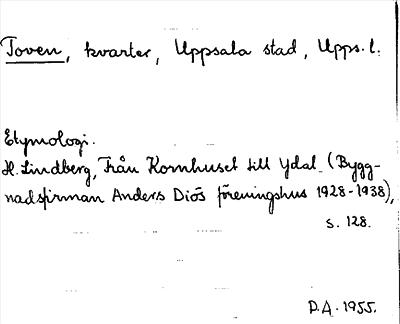 Toven, kvarter, Uppsala stad, Upps. l.
Etymologi.
H. Lindberg, Från Kornhuset till Ydal (Bygg-
nadsfirman Anders Diös föreningshus 1928-1938),
s. 128.
D.A. 1955.